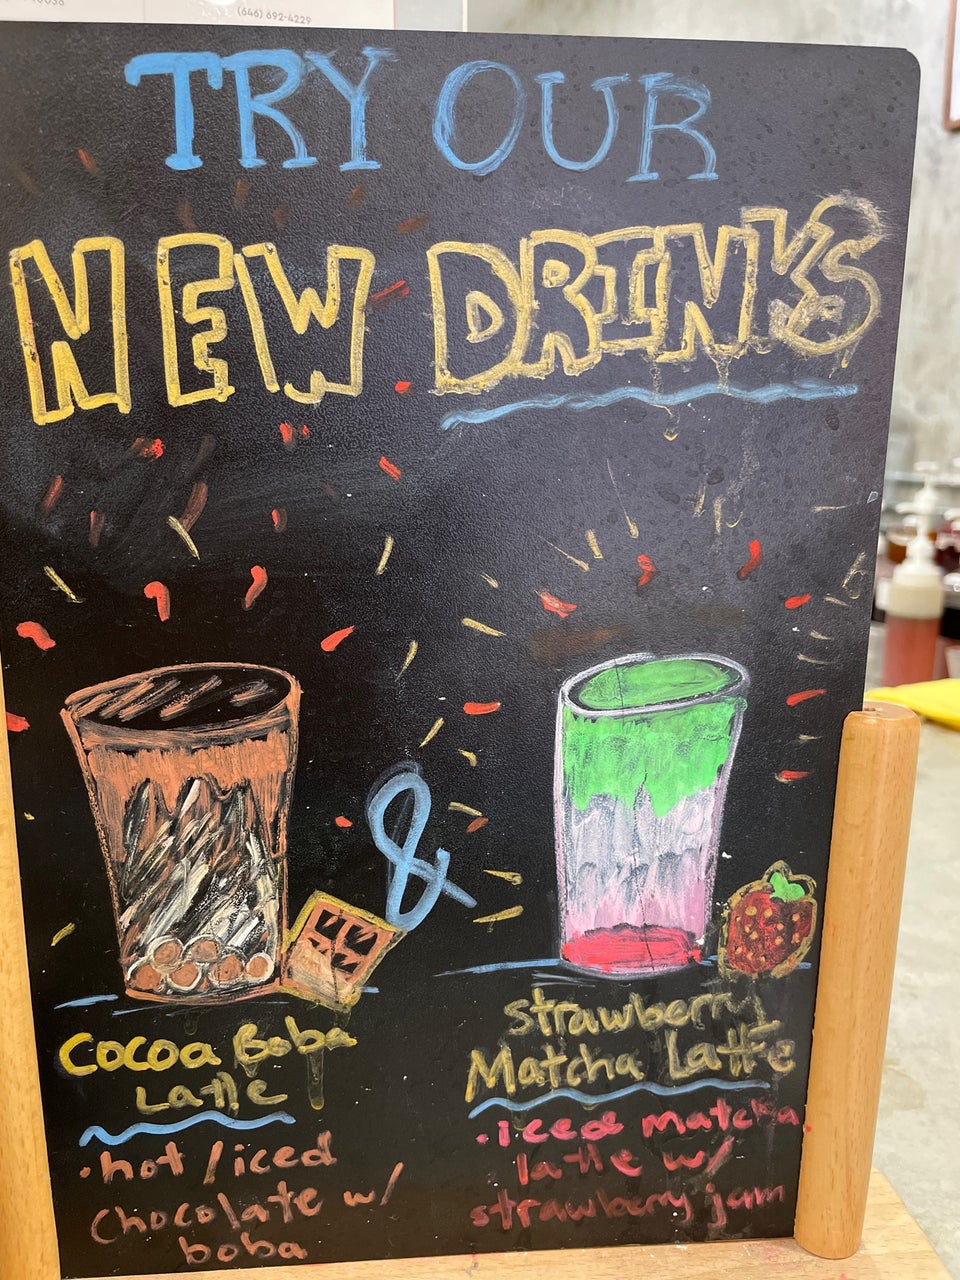 (646) 692-4229
TRY OUR
NEW DRINKS
&
Cocoa Boba
Latte
• hot / iced
Chocolate w/
boba
strawberry
Matcha Latte
• iced matcha
latte w/
strawberry jam